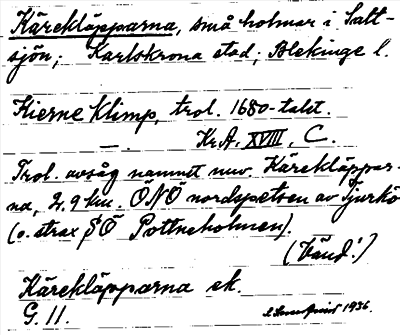 Kärekläpparna, små holmar i Salt-
sjön; Karlskrona stad; Blekinge l.
Kierne Klimp, trol. 1680-talet.
—. Kr.A. XVIII, C.
Trol. avsåg namnet nuv. Kärekläppar-
na, 2,9 km. ÖNÖ nordspetsen av Tjurkö
(o. strax SÖ Pottneholmen).
(Vänd!)
Kärekläpparna ek.
G. 11. 1936.